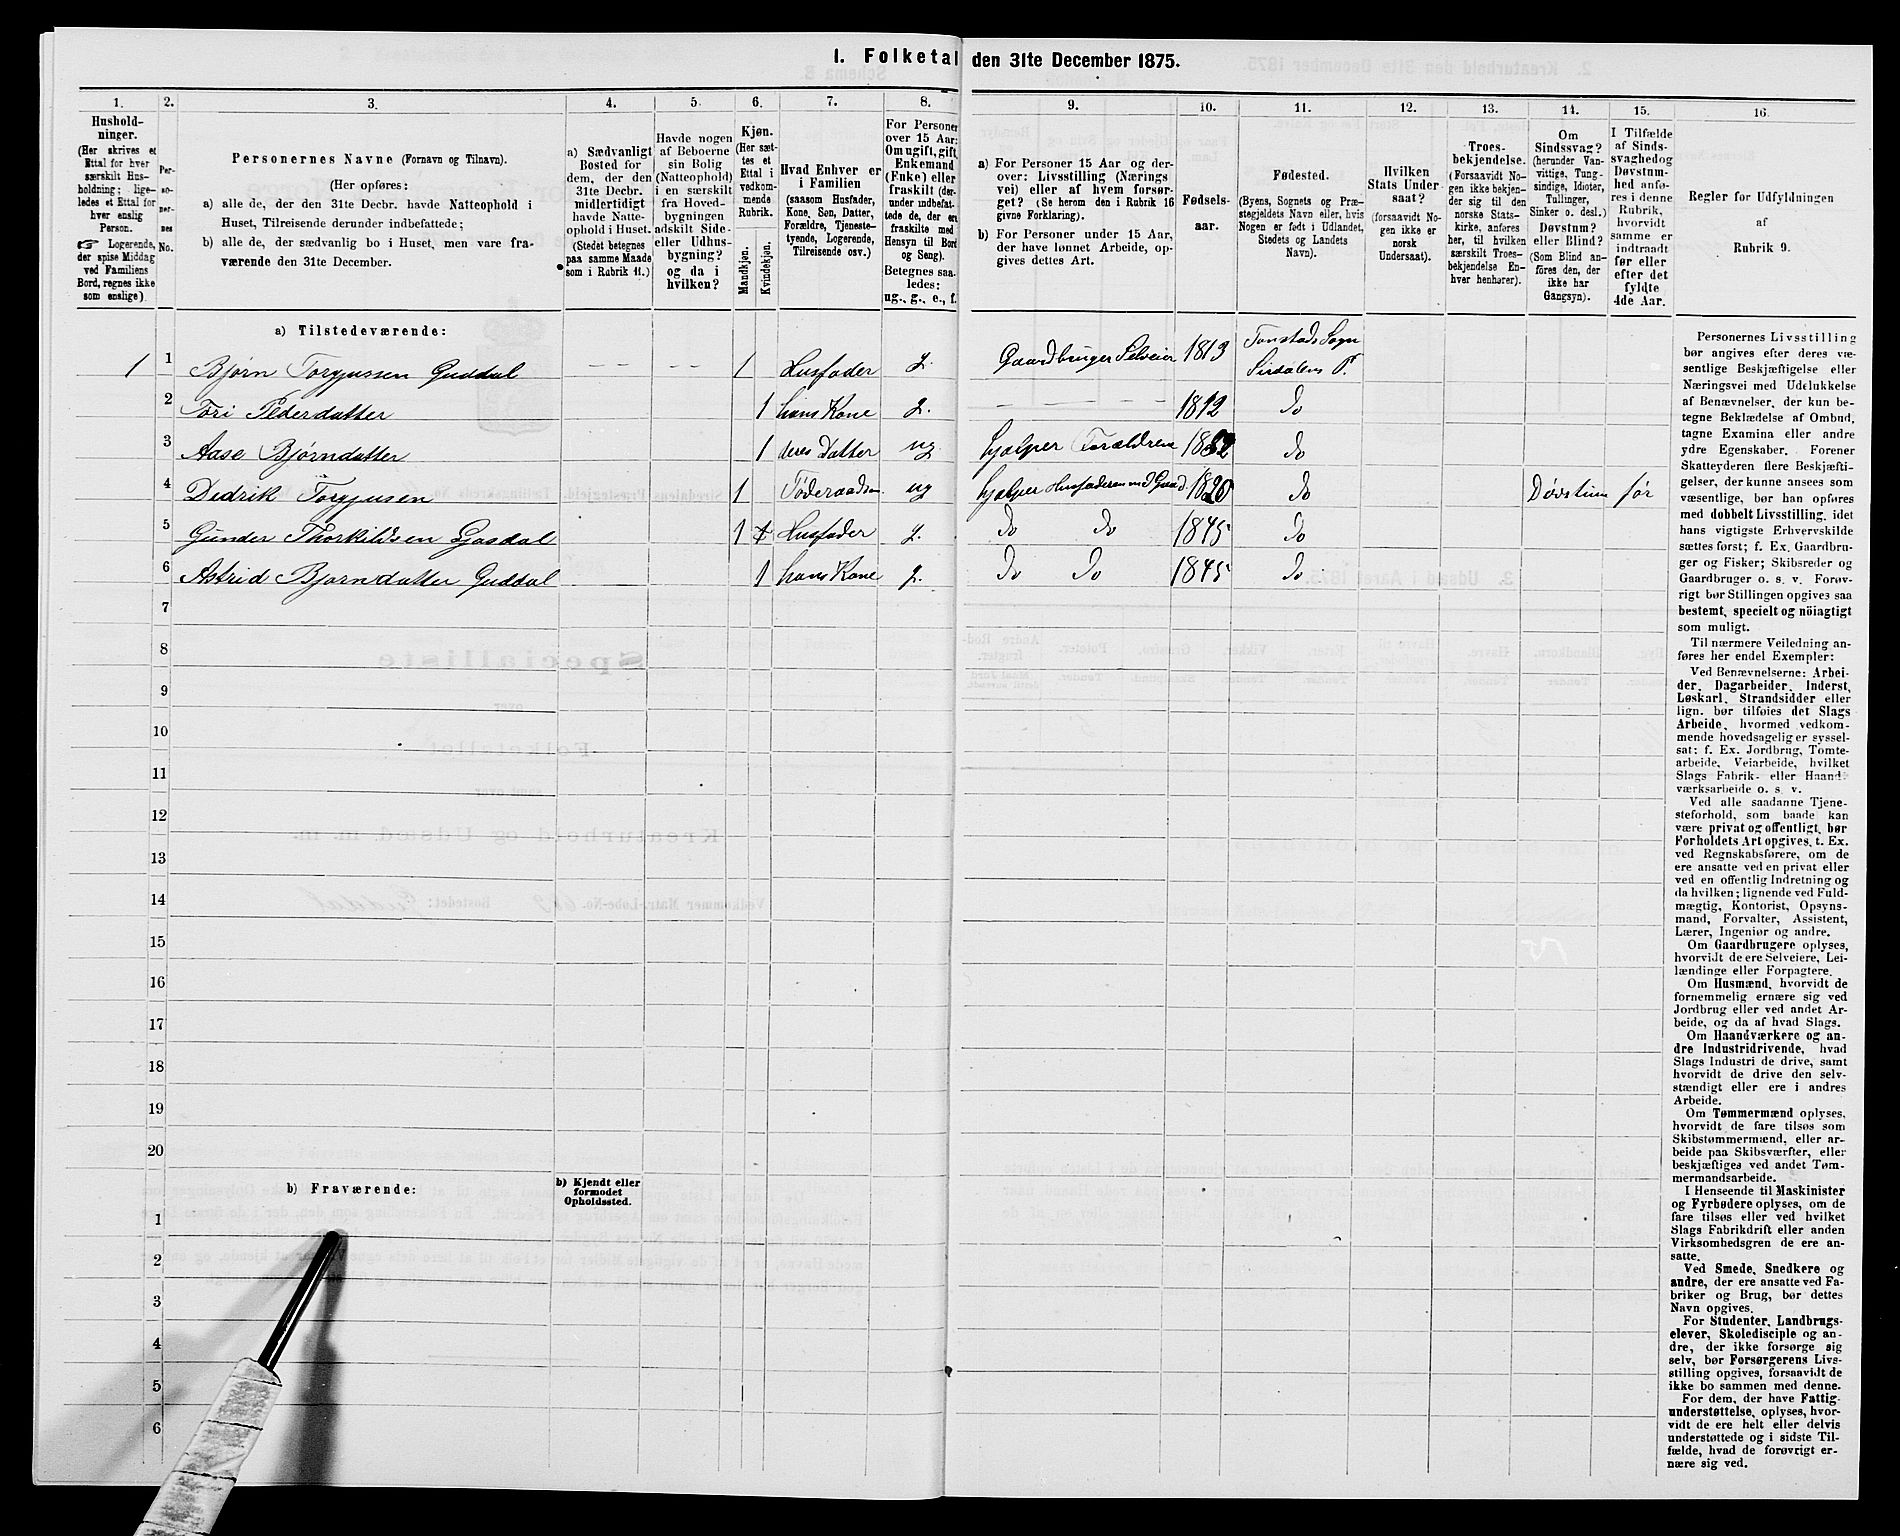 1. Folketal den 31te December 1875.
1. 2. 3. 4. 5. 6. 7. 8. 9. 10. 11. 12. 13. 14. 15. 16.
Hushold-
ninger.
(Her skrives et
Ettal for hver
særskilt Hus-
holdning; lige-
ledes et Ettal for
hver enslig
Person.
☞ Logerende,
der spise Middag
ved Familiens
Bord, regnes ikke
som enslige)
Per-
so-
ner-
nes
No.
Personernes Navne (Fornavn og Tilnavn).
(Her opføres:
a) alle de, der den 31te Decbr. havde Natteophold i
Huset, Tilreisende derunder indbefattede;
b) alle de, der sædvanlig bo i Huset, men vare fra-
værende den 31te December.
a) Sædvanligt
Bosted for
dem, der den
31te Decbr.
midlertidigt
havde Natte-
ophold i Huset.
(Stedet betegnes
paa samme Maade
som i Rubrik 11.)
Havde nogen
af Beboerne
sin Bolig
(Natteophold)
i en særskilt
fra Hoved-
bygningen
adskilt Side-
eller Udhus-
bygning?
og da i
hvilken?
Kjøn.
(Her sæt-
tes et
Ettal i
vedkom-
mende
Rubrik.
Mandkjøn.
Kvindekjøn.
Hvad Enhver er
i Familien
(saasom Husfader,
Kone, Søn, Datter,
Forældre, Tjeneste-
tyende, Logerende,
Tilreisende osv.)
For Personer
over 15 Aar:
Om ugift, gift,
Enkemand
(Enke) eller
fraskilt (der-
under indbefat-
tede de, der ere
fraskilte med
Hensyn til Bord
og Seng).
Betegnes saa-
ledes:
ug., g., e., f.
a) For Personer 15 Aar og der-
over: Livsstilling (Nærings
vei) eller af hvem forsør-
get? (Se herom den i Rubrik 16
givne Forklaring).
b) For Personer under 15 Aar,
der have lønnet Arbeide, op-
gives dettes Art.
Fødsels-
aar.
Fødested.
(Byens, Sognets og Præ-
stegjeldets Navn eller, hvis
Nogen er født i Udlandet,
Stedets og Landets
Navn).
Hvilken
Stats Under-
saat?
(forsaavidt No-
gen ikke er
norsk
Undersaat).
Troes-
bekjendelse.
(Forsaavidt No-
gen ikke bekjen-
der sig til den
norske Stats-
kirke, anføres
her, til hvilken
særskilt Troes-
bekjendelse En-
hver henhører).
Om
Sindssvag?
(herunder Van-
vittige, Tung-
sindige, Idioter,
Tullinger,
Sinker o. desl.)
Døvstum?
eller Blind?
(Som Blind an-
føres den, der
ikke har
Gangsyn).
I Tilfælde
af Sinds-
svaghed og
Døvstum-
hed anfø-
res i denne
Rubrik,
hvorvidt
samme er
indtraadt
før eller
efter det
fyldte
4de Aar.
Regler for Udfyldningen
af
Rubrik 9.
a) Tilstedeværende:
1 1 Bjørn Torgjussen Guddal 1 Husfader g. Gaardbruger Selveier 1813 Tonstads Sogn
Sirdalens P.
2 Tori Pedersdatter 1 hans Kone g. 1812 Do
3 Aase Bjørndatter 1 deres Datter ug hjælper Forældrene 1852 Do
4 Dedrik Torgjusen 1 Føderaadsm ug hjælper Husfaderen ved Gaard. 1820 Do Døvstum før
5 Gunder Thorkildsen Josdal 1 Husfader g. Do Do 1845 Do
6 Astrid Bjørndatter Guddal 1 hans Kone g. Do Do 1845 Do
7
8
9
10
11
12
13
14
15
16
17
18
19
20
b) Fraværende:
b) Kjendt eller
formodet
Opholdssted.
1
2
3
4
5
6
Personernes Livsstilling
bør angives efter deres væ-
sentlige Beskjæftigelse eller
Næringsvei med Udelukkelse
af Benævnelser, der kun be-
tegne Beklædelse af Ombud,
tagne Examina eller andre
ydre Egenskaber. Forener
Skatteyderen flere Beskjæfti-
gelser, der kunne ansees som
væsentlige, bør han opføres
med dobbelt Livsstilling, idet
hans vigtigste Erhvervskilde
sættes først; f. Ex. Gaardbru-
ger og Fisker; Skibsreder og
Gaardbruger o. s. v. Forøv-
rigt bør Stillingen opgives saa
bestemt, specielt og nöiagtigt
som muligt.
Til nærmere Veiledning an-
føres her endel Exempler:
Ved Benævnelserne: Arbei-
der, Dagarbeider, Inderst,
Løskarl, Strandsidder eller
lign. bør tilføies det Slags
Arbeide, hvormed vedkom-
mende hovedsagelig er syssel-
sat; f. Ex. Jordbrug, Tomte-
arbeide, Veiarbeide, hvilket
Slags Fabrik- eller Haand-
værksarbeide o. s. v.
Ved alle saadanne Tjene-
steforhold, som baade kan
være privat og offentligt, bør
Forholdets Art opgives, t. Ex.
ved Regnskabsførere, om de
ere ansatte ved en privat eller
ved en offentlig Indretning og
da hvilken; lignende ved Fuld-
mægtig, Kontorist, Opsyns-
mand, Forvalter, Assistent,
Lærer, Ingeniør og andre.
Om Gaardbrugere oplyses,
hvorvidt de ere Selveiere, Lei-
lændinge eller Forpagtere.
Om Husmænd, hvorvidt de
fornemmelig ernære sig ved
Jordbrug eller ved andet Ar-
beide, og da af hvad Slags.
Om Haandværkere og an-
dre Industridrivende, hvad
Slags Industri de drive, samt
hvorvidt de drive den selv-
stændigt eller ere i andres
Arbeide.
Om Tømmermænd oplyses,
hvorvidt de fare tilsøs som
Skibstømmermænd, eller ar-
beide paa Skibsværfter, eller
beskjæftiges ved andet Tøm-
mermandsarbeide.
I Henseende til Maskinister
og Fyrbødere oplyses, om de
fare tilsøs eller ved hvilket
Slags Fabrikdrift eller anden
Virksomhedsgren de ere an-
satte.
Ved Smede, Snedkere og
andre, der ere ansatte ved Fa-
briker og Brug, bør dettes
Navn opgives.
For Studenter, Landbrugs-
elever, Skoledisciple og an-
dre, der ikke forsørge sig
selv, bør Forsørgerens Livs-
stilling opgives, forsaavidt de
ikke bo sammen med denne.
For dem, der have Fattig-
understøttelse, oplyses, hvor-
vidt de ere helt eller delvis
understøttede og i sidste Til-
fælde, hvad de forøvrigt er-
nære sig ved.